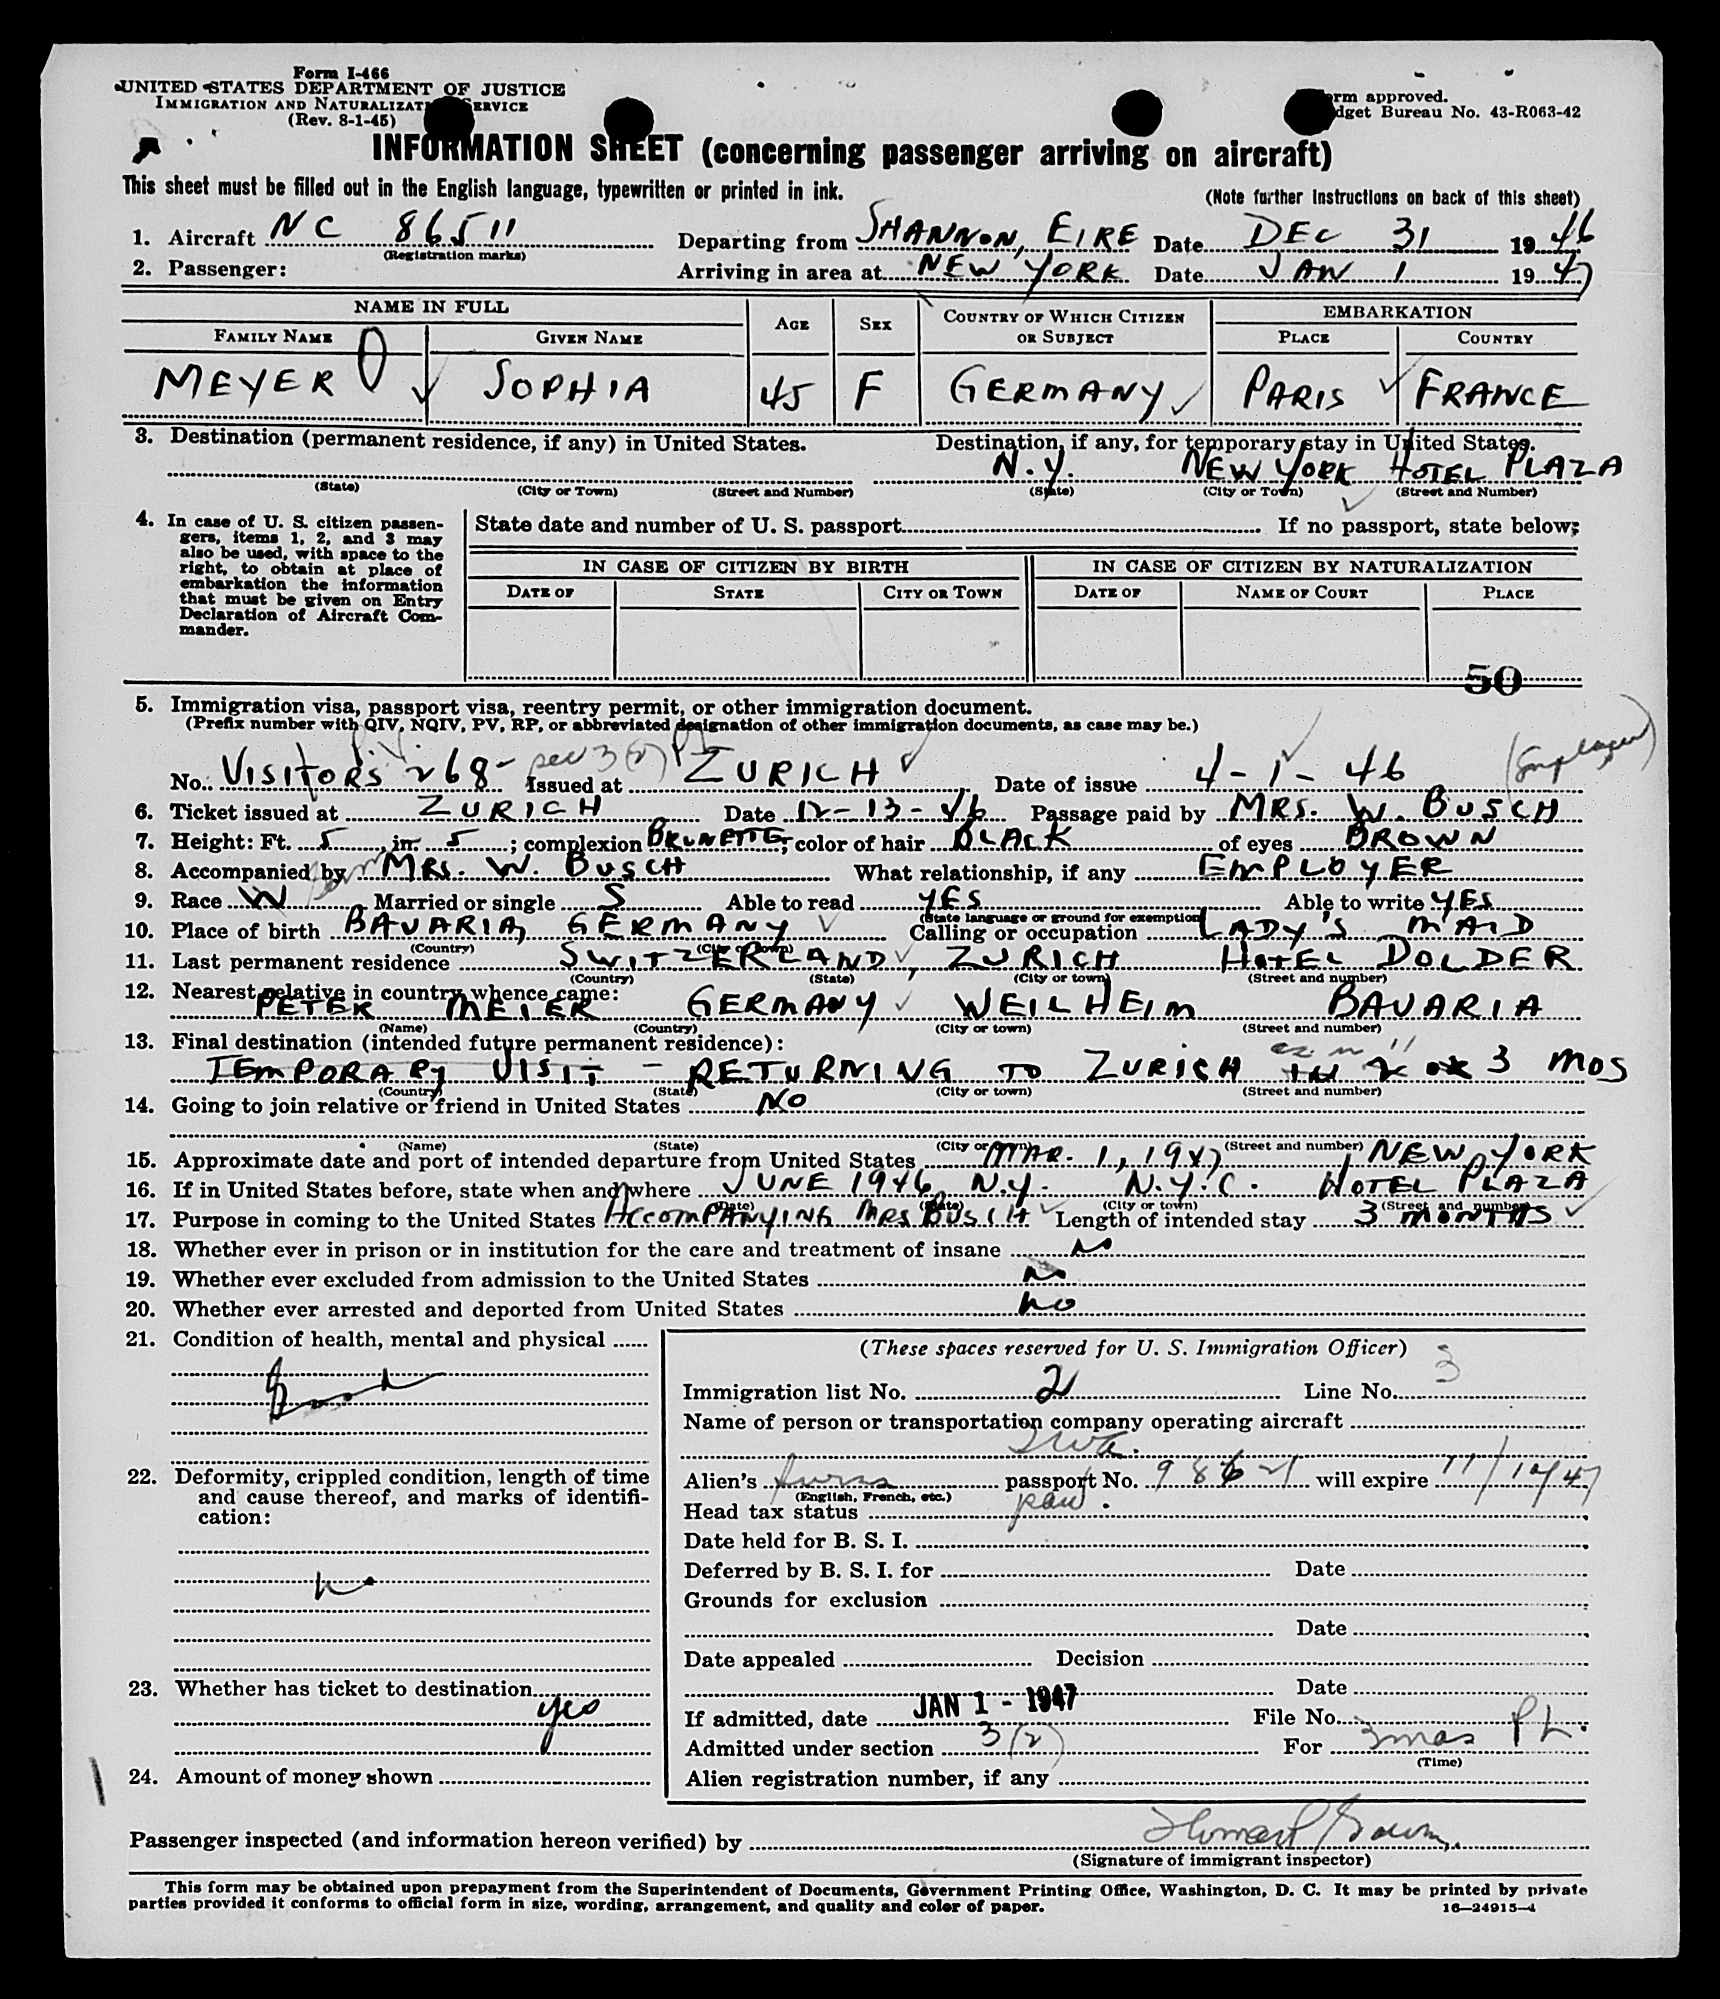 Form I-466
UNITED STATES DEPARTMENT OF JUSTICE
IMMIGRATION AND NATURALIZATION SERVICE
(Rev. 8-1-45)
Form approved.
Budget Bureau No. 43-R063-42
INFORMATION SHEET (concerning passenger arriving on aircraft)
This sheet must be filled out in the English language, typewritten or printed in ink.
(Note further instructions on back of this sheet)
1. Aircraft NC 86511 Departing from SHANNON, EIRE Date DEC 31 1946
(Registration marks)
2. Passenger: Arriving in area at NEW YORK Date JAN 1 1947
NAME IN FULL AGE SEX COUNTRY OF WHICH CITIZEN OR SUBJECT EMBARKATION
FAMILY NAME GIVEN NAME PLACE COUNTRY
MEYER SOPHIA 45 F GERMANY PARIS FRANCE
3. Destination (permanent residence, if any) in United States. Destination, if any, for temporary stay in United States.
N.Y. NEW YORK HOTEL PLAZA
(State) (City or Town) (Street and Number) (State) (City or Town) (Street and Number)
4. In case of U. S. citizen passen-
gers, items 1, 2, and 3 may
also be used, with space to the
right, to obtain at place of
embarkation the information
that must be given on Entry
Declaration of Aircraft Com-
mander.
State date and number of U. S. passport If no passport, state below:
IN CASE OF CITIZEN BY BIRTH IN CASE OF CITIZEN BY NATURALIZATION
DATE OF STATE CITY OR TOWN DATE OF NAME OF COURT PLACE
50
5. Immigration visa, passport visa, reentry permit, or other immigration document.
(Prefix number with QIV, NQIV, PV, RP, or abbreviated designation of other immigration documents, as case may be.)
P.V. sec 3(2) (Employer)
No. VISITORS 268 Issued at ZURICH Date of issue 4-1-46
6. Ticket issued at ZURICH Date 12-13-46 Passage paid by MRS. W. BUSCH
7. Height: Ft. 5 in. 5; complexion BRUNETTE; color of hair BLACK of eyes BROWN
8. Accompanied by MRS. W. BUSCH What relationship, if any EMPLOYER
9. Race W Married or single S Able to read YES Able to write YES
(State language or ground for exemption)
10. Place of birth BAVARIA, GERMANY Calling or occupation LADY'S MAID
(Country) (City or town)
11. Last permanent residence SWITZERLAND, ZURICH HOTEL DOLDER
(Country) (State) (City or town) (Street and number)
12. Nearest relative in country whence came:
PETER MEIER GERMANY WEILHEIM BAVARIA
(Name) (Country) (City or town) (Street and number)
13. Final destination (intended future permanent residence):
TEMPORARY VISIT - RETURNING TO ZURICH 3 MOS
(Country) (State) (City or town) (Street and number)
14. Going to join relative or friend in United States NO
(Name) (State) (City or town) (Street and number)
15. Approximate date and port of intended departure from United States MAR. 1, 1947 NEW YORK
16. If in United States before, state when and where JUNE 1946 N.Y. N.Y.C. HOTEL PLAZA
(Date) (State) (City or town) (Street and number)
17. Purpose in coming to the United States ACCOMPANYING MRS BUSCH Length of intended stay 3 MONTHS
18. Whether ever in prison or in institution for the care and treatment of insane No
19. Whether ever excluded from admission to the United States No
20. Whether ever arrested and deported from United States No
21. Condition of health, mental and physical
Good
22. Deformity, crippled condition, length of time
and cause thereof, and marks of identifi-
cation:
no
23. Whether has ticket to destination
yes
24. Amount of money shown
(These spaces reserved for U. S. Immigration Officer)
Immigration list No. 2 Line No. 3
Name of person or transportation company operating aircraft
TWA.
Alien's passport No. will expire 11/10/47
(English, French, etc.)
Head tax status paid.
Date held for B. S. I.
Deferred by B. S. I. for Date
Grounds for exclusion
Date
Date appealed Decision
Date
If admitted, date JAN 1 - 1947 File No.
Admitted under section 3(2) For 3 mos PL.
(Time)
Alien registration number, if any
Passenger inspected (and information hereon verified) by
(Signature of immigrant inspector)
This form may be obtained upon prepayment from the Superintendent of Documents, Government Printing Office, Washington, D. C. It may be printed by private
parties provided it conforms to official form in size, wording, arrangement, and quality and color of paper.
16—24915-4